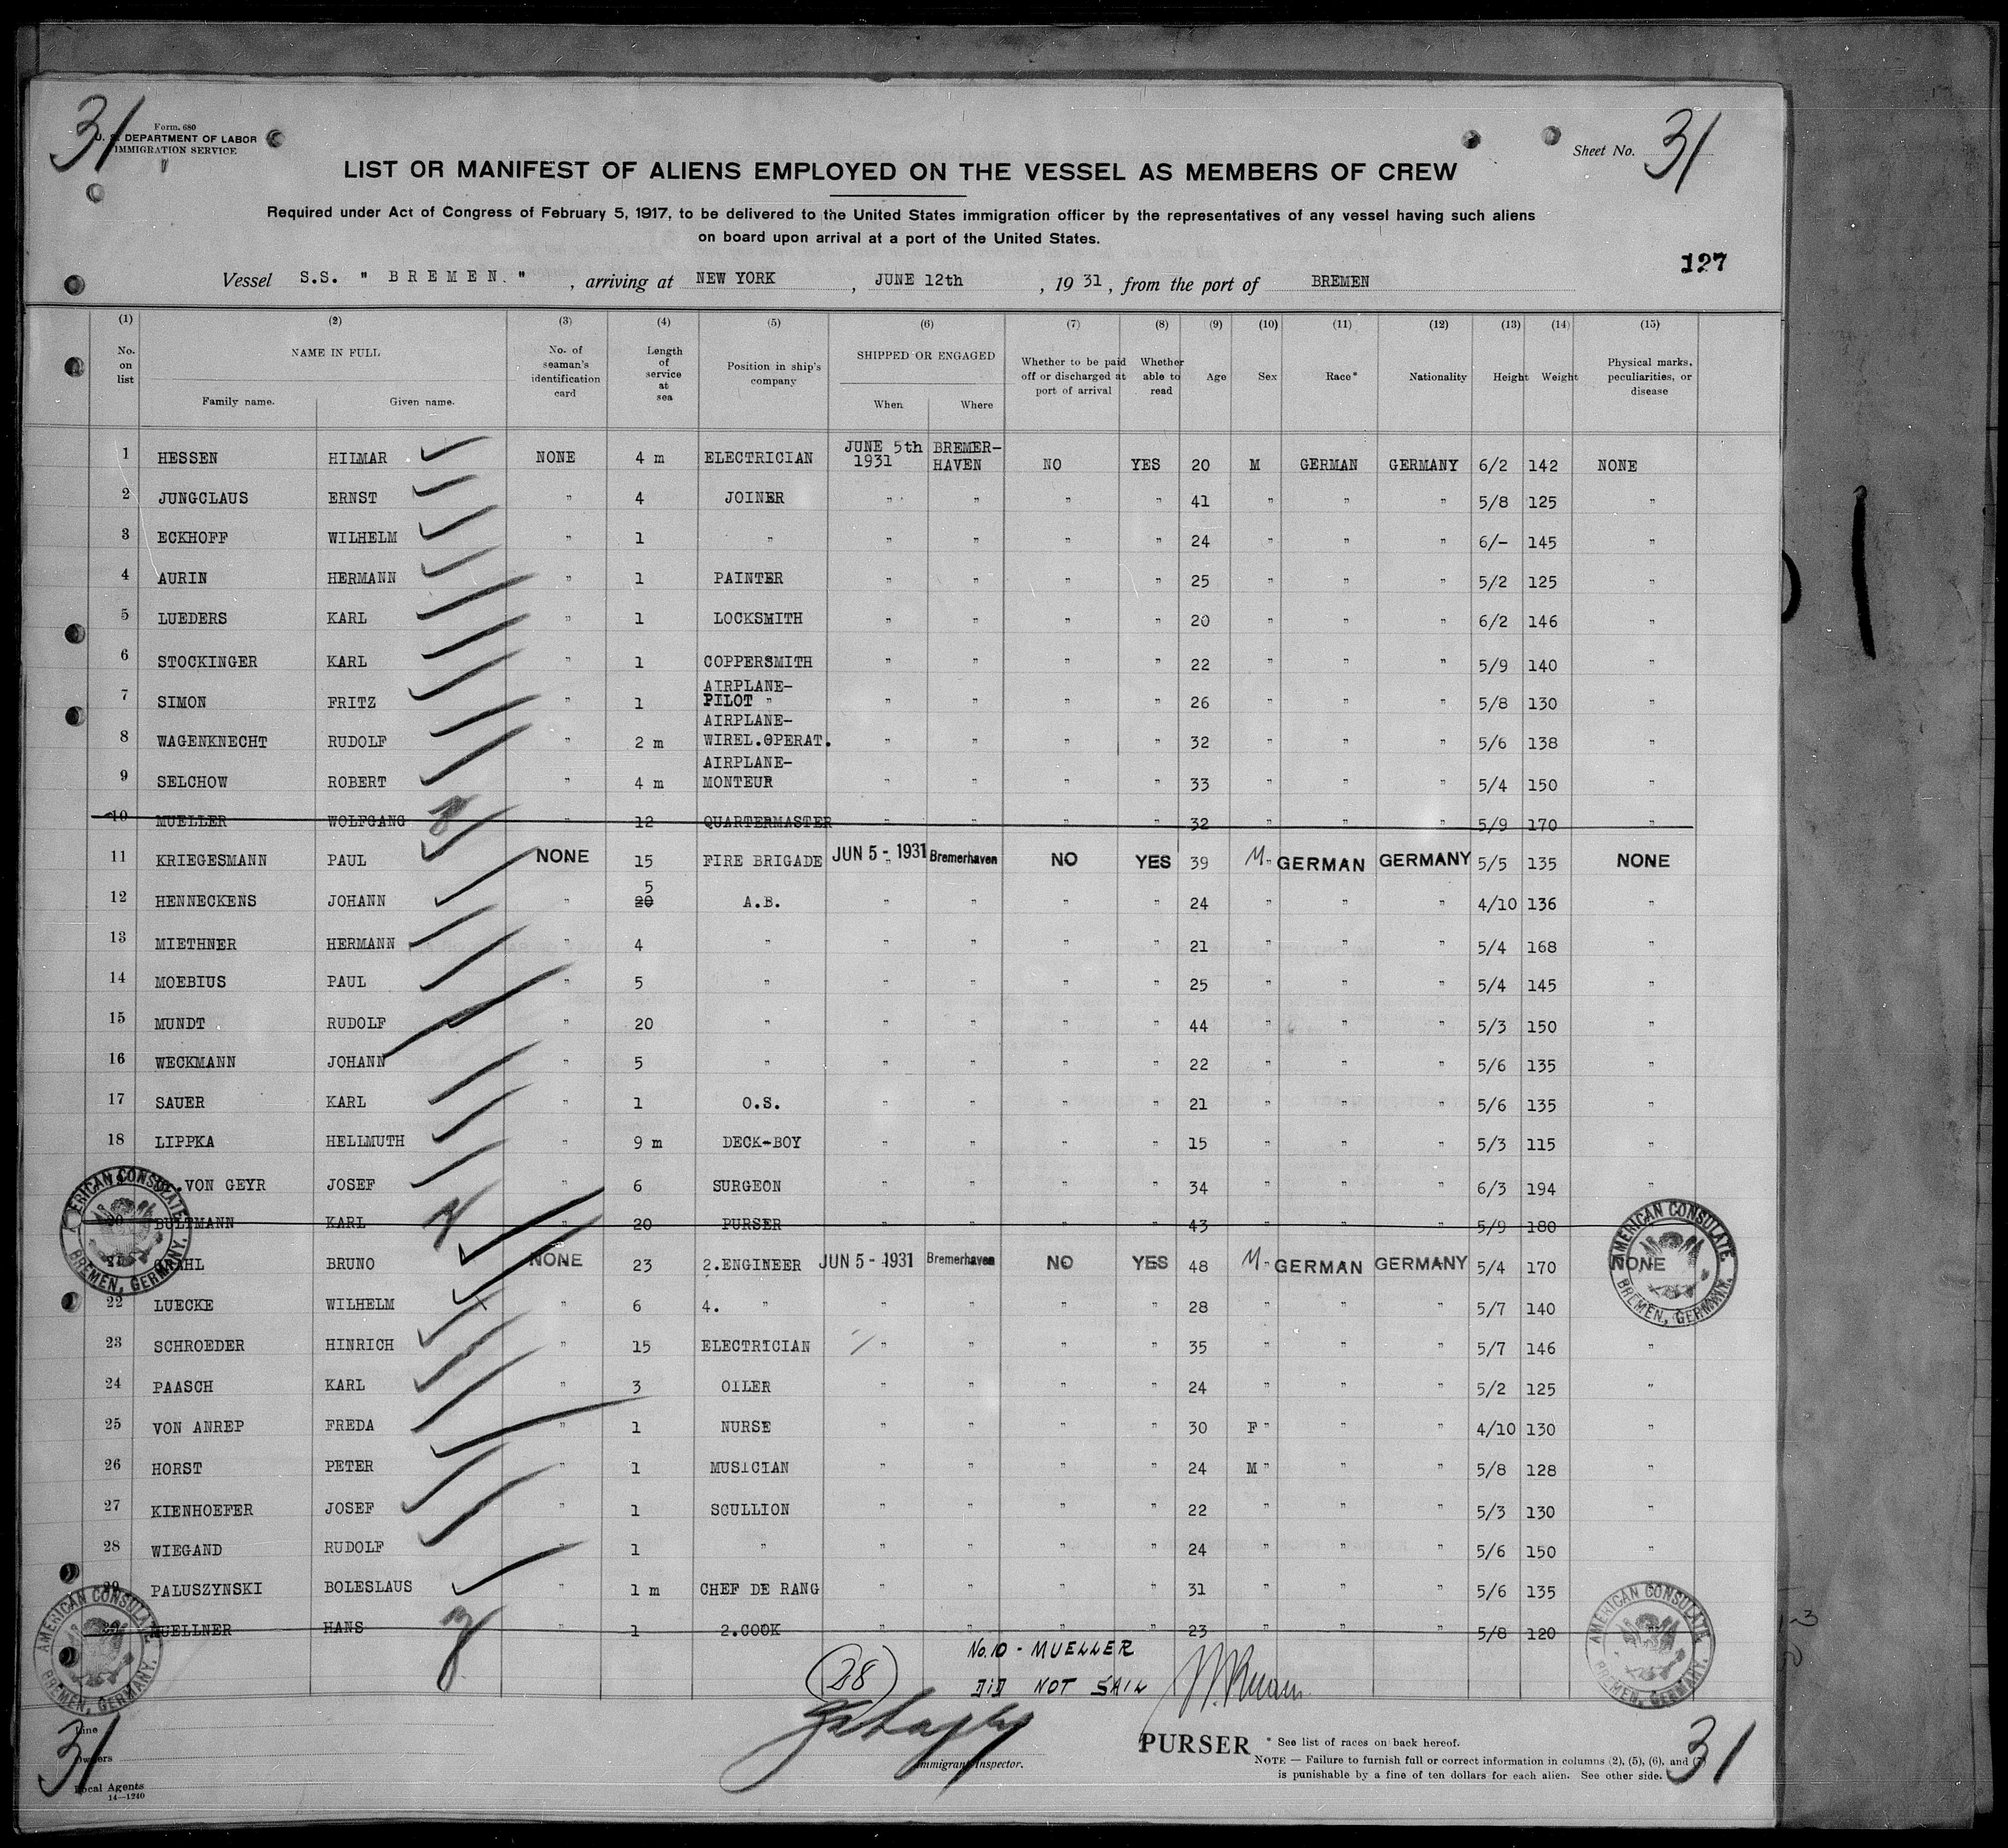 31
Form. 680
U. S. DEPARTMENT OF LABOR
IMMIGRATION SERVICE
Sheet No. 31
LIST OR MANIFEST OF ALIENS EMPLOYED ON THE VESSEL AS MEMBERS OF CREW
Required under Act of Congress of February 5, 1917, to be delivered to the United States immigration officer by the representatives of any vessel having such aliens
on board upon arrival at a port of the United States.
127
Vessel S.S. " BREMEN. " , arriving at NEW YORK , JUNE 12th , 19 31 , from the port of BREMEN
(1) (2) (3) (4) (5) (6) (7) (8) (9) (10) (11) (12) (13) (14) (15)
No. on list NAME IN FULL Family name. Given name. No. of seaman's identification card Length of service at sea Position in ship's company SHIPPED OR ENGAGED When Where Whether to be paid off or discharged at port of arrival Whether able to read Age Sex Race* Nationality Height Weight Physical marks, peculiarities, or disease
1 HESSEN HILMAR NONE 4 m ELECTRICIAN JUNE 5th 1931 BREMER-HAVEN NO YES 20 M GERMAN GERMANY 6/2 142 NONE
2 JUNGCLAUS ERNST " 4 JOINER " " " " 41 " " " 5/8 125 "
3 ECKHOFF WILHELM " 1 " " " " " 24 " " " 6/- 145 "
4 AURIN HERMANN " 1 PAINTER " " " " 25 " " " 5/2 125 "
5 LUEDERS KARL " 1 LOCKSMITH " " " " 20 " " " 6/2 146 "
6 STOCKINGER KARL " 1 COPPERSMITH " " " " 22 " " " 5/9 140 "
7 SIMON FRITZ " 1 AIRPLANE-PILOT " " " " " 26 " " " 5/8 130 "
8 WAGENKNECHT RUDOLF " 2 m AIRPLANE-WIREL.OPERAT. " " " " 32 " " " 5/6 138 "
9 SELCHOW ROBERT " 4 m AIRPLANE-MONTEUR " " " " 33 " " " 5/4 150 "
10 MUELLER WOLFGANG " 12 QUARTERMASTER " " " " 32 " " " 5/9 170 "
11 KRIEGESMANN PAUL NONE 15 FIRE BRIGADE JUN 5 - 1931 Bremerhaven NO YES 39 M " GERMAN GERMANY 5/5 135 NONE
12 HENNECKENS JOHANN " 5 20 A.B. " " " " 24 " " " 4/10 136 "
13 MIETHNER HERMANN " 4 " " " " " 21 " " " 5/4 168 "
14 MOEBIUS PAUL " 5 " " " " " 25 " " " 5/4 145 "
15 MUNDT RUDOLF " 20 " " " " " 44 " " " 5/3 150 "
16 WECKMANN JOHANN " 5 " " " " " 22 " " " 5/6 135 "
17 SAUER KARL " 1 O.S. " " " " 21 " " " 5/6 135 "
18 LIPPKA HELLMUTH " 9 m DECK-BOY " " " " 15 " " " 5/3 115 "
VON GEYR JOSEF " 6 SURGEON " " " " 34 " " " 6/3 194 "
20 BULTMANN KARL " 20 PURSER " " " " 43 " " " 5/9 180
BRUNO NONE 23 2.ENGINEER JUN 5 - 1931 Bremerhaven NO YES 48 M " GERMAN GERMANY 5/4 170 NONE
22 LUECKE WILHELM " 6 4. " " " " " 28 " " " 5/7 140
23 SCHROEDER HINRICH " 15 ELECTRICIAN " " " " 35 " " " 5/7 146 "
24 PAASCH KARL " 3 OILER " " " " 24 " " " 5/2 125 "
25 VON ANREP FREDA " 1 NURSE " " " " 30 F " " " 4/10 130 "
26 HORST PETER " 1 MUSICIAN " " " " 24 M " " " 5/8 128 "
27 KIENHOEFER JOSEF " 1 SCULLION " " " " 22 " " " 5/3 130 "
28 WIEGAND RUDOLF " 1 " " " " " 24 " " " 5/6 150 "
29 PALUSZYNSKI BOLESLAUS " 1 m CHEF DE RANG " " " " 31 " " " 5/6 135
MUELLNER HANS " 1 2.COOK " " " " 23 " " " 5/8 120 "
AMERICAN CONSULATE, BREMEN, GERMANY.
AMERICAN CONSULATE, BREMEN, GERMANY.
AMERICAN CONSULATE, BREMEN, GERMANY.
AMERICAN CONSULATE, BREMEN, GERMANY.
No.10 - MUELLER
DID NOT SAIL
28
Line
Owners
Local Agents
14—1240
31
Immigrant Inspector.
PURSER
* See list of races on back hereof.
NOTE — Failure to furnish full or correct information in columns (2), (5), (6), and (7)
is punishable by a fine of ten dollars for each alien. See other side.
31